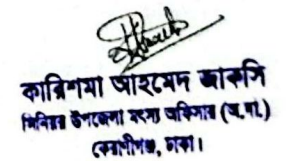 কারিশমা আহমেদ জাকসি
সিনিয়র উপজেলা মৎস্য অফিসার (অ.দা.)
কেরানীগঞ্জ, ঢাকা।